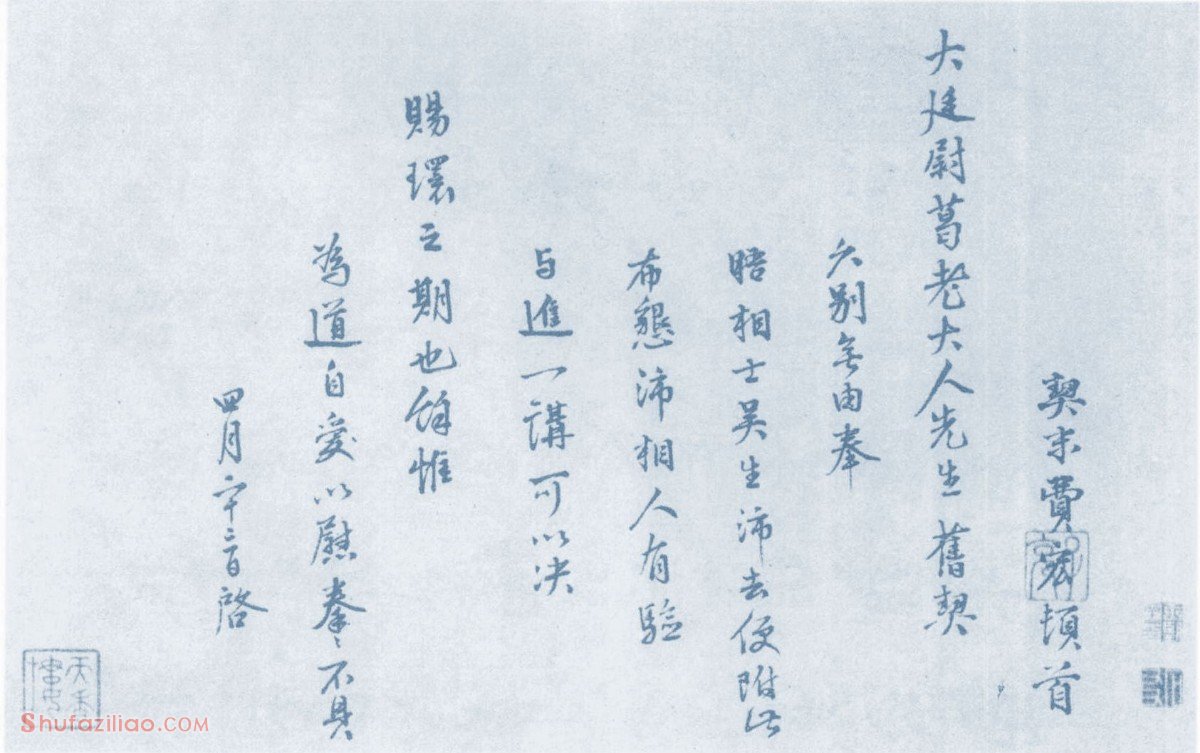 契末費宏頓首
大廷尉葛老大人先生舊契
久別無由奉
晤相士吴生沛去便附此
布懇沛相人有驗
与進一講可以决
賜環之期也餘惟
為道自愛以慰拳〻不具
四月廿三日啓
Shufaziliao.COM